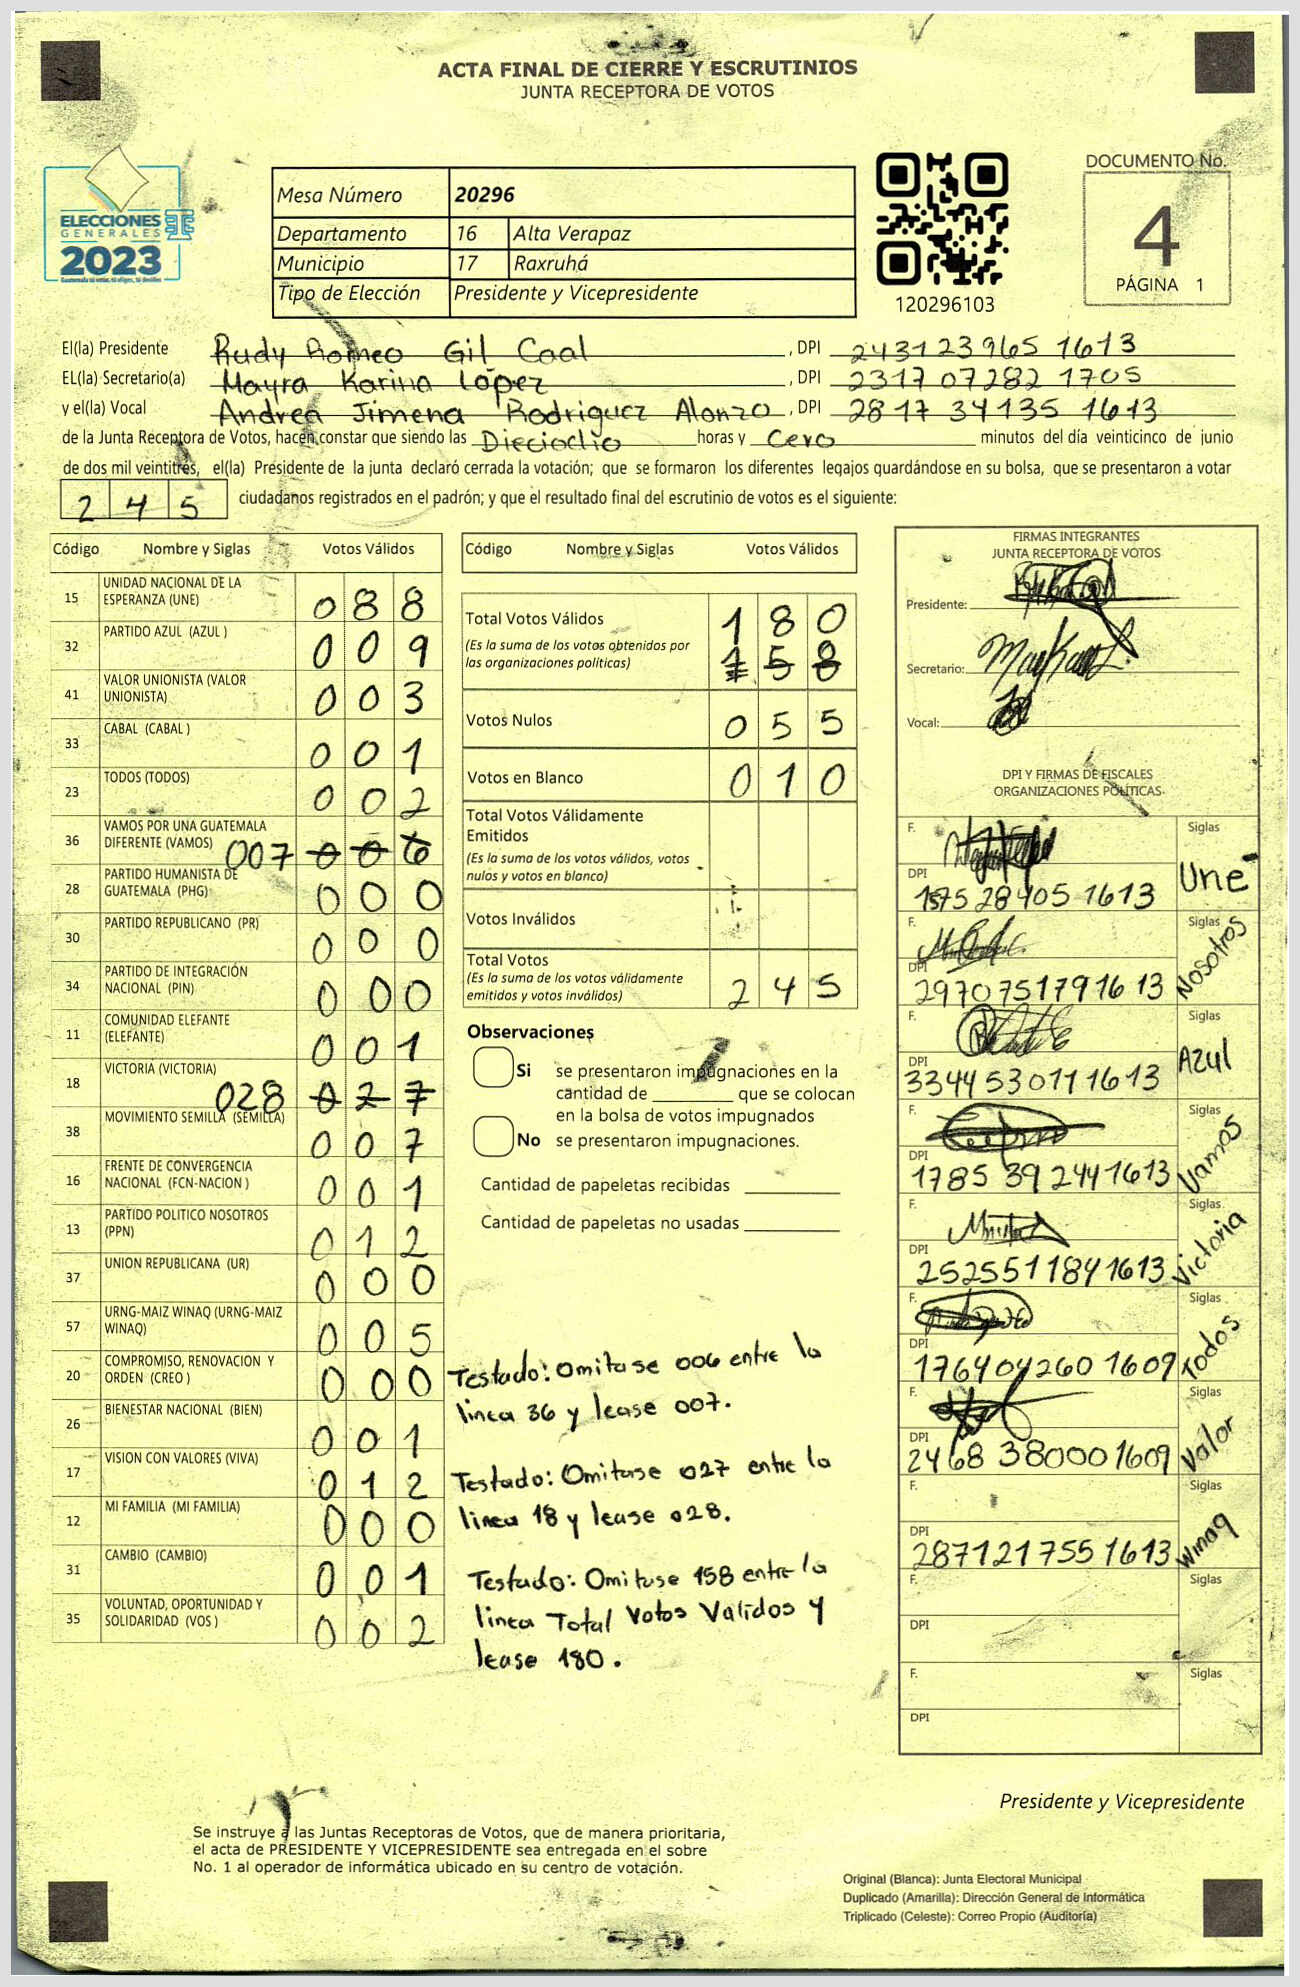 ACTA FINAL DE CIERRE Y ESCRUTINIOS
JUNTA RECEPTORA DE VOTOS
ELECCIONES
GENERALES
2023
Mesa Número 20296
Departamento 16 Alta Verapaz
Municipio 17 Raxruhá
Tipo de Elección Presidente y Vicepresidente
120296103
DOCUMENTO No.
4
PÁGINA 1
El(la) Presidente Rudy Romeo Gil Caal, DPI 243123965 1613
EL(la) Secretario(a) Mayra Karina López, DPI 2317 07282 1705
y el(la) Vocal Andrea Jimena Rodriguez Alonzo, DPI 2817 34135 1613
de la Junta Receptora de Votos, hacen constar que siendo las Dieciocho horas y Cero minutos del día veinticinco de junio
de dos mil veintitrés, el(la) Presidente de la junta declaró cerrada la votación; que se formaron los diferentes legajos quardándose en su bolsa, que se presentaron a votar
245 ciudadanos registrados en el padrón; y que el resultado final del escrutinio de votos es el siguiente:
Código Nombre y Siglas Votos Válidos
15 UNIDAD NACIONAL DE LA ESPERANZA (UNE) 088
32 PARTIDO AZUL (AZUL ) 009
41 VALOR UNIONISTA (VALOR UNIONISTA) 003
33 CABAL (CABAL ) 001
23 TODOS (TODOS) 002
36 VAMOS POR UNA GUATEMALA DIFERENTE (VAMOS) 007 006
28 PARTIDO HUMANISTA DE GUATEMALA (PHG) 000
30 PARTIDO REPUBLICANO (PR) 000
34 PARTIDO DE INTEGRACIÓN NACIONAL (PIN) 000
11 COMUNIDAD ELEFANTE (ELEFANTE) 001
18 VICTORIA (VICTORIA) 028 027
38 MOVIMIENTO SEMILLA (SEMILLA) 007
16 FRENTE DE CONVERGENCIA NACIONAL (FCN-NACION ) 001
13 PARTIDO POLITICO NOSOTROS (PPN) 012
37 UNION REPUBLICANA (UR) 000
57 URNG-MAIZ WINAQ (URNG-MAIZ WINAQ) 005
20 COMPROMISO, RENOVACION Y ORDEN (CREO ) 000
26 BIENESTAR NACIONAL (BIEN) 001
17 VISION CON VALORES (VIVA) 012
12 MI FAMILIA (MI FAMILIA) 000
31 CAMBIO (CAMBIO) 001
35 VOLUNTAD, OPORTUNIDAD Y SOLIDARIDAD (VOS ) 002
Código Nombre y Siglas Votos Válidos
Total Votos Válidos 180
(Es la suma de los votos obtenidos por
las organizaciones políticas) 158
Votos Nulos 055
Votos en Blanco 010
Total Votos Válidamente
Emitidos
(Es la suma de los votos válidos, votos
nulos y votos en blanco)
Votos Inválidos
Total Votos
(Es la suma de los votos válidamente
emitidos y votos inválidos) 245
Observaciones
Si se presentaron impugnaciones en la
cantidad de ________ que se colocan
en la bolsa de votos impugnados
No se presentaron impugnaciones.
Cantidad de papeletas recibidas
Cantidad de papeletas no usadas
Testado: Omitase 006 entre la
linea 36 y lease 007.
Testado: Omitase 027 entre la
linea 18 y lease 028.
Testado: Omitase 158 entre la
linea Total Votos Validos y
lease 180.
FIRMAS INTEGRANTES
JUNTA RECEPTORA DE VOTOS
Presidente:
Secretario:
Vocal:
DPI Y FIRMAS DE FISCALES
ORGANIZACIONES POLÍTICAS
F. Siglas
DPI 28405 1613 Une
F. Siglas
DPI 297075179 1613 Nosotros
F. Siglas
DPI 3344 53011 1613 Azul
F. Siglas
DPI 1785 39 244 1613 Vamos
F. Siglas
DPI 252551184 1613 Victoria
F. Siglas
DPI 176404260 1609 Todos
F. Siglas
DPI 2468 38000 1609 Valor
F. Siglas
DPI 287121755 1613 Winaq
F. Siglas
DPI
F. Siglas
DPI
Presidente y Vicepresidente
Se instruye a las Juntas Receptoras de Votos, que de manera prioritaria,
el acta de PRESIDENTE Y VICEPRESIDENTE sea entregada en el sobre
No. 1 al operador de informática ubicado en su centro de votación.
Original (Blanca): Junta Electoral Municipal
Duplicado (Amarilla): Dirección General de Informática
Triplicado (Celeste): Correo Propio (Auditoría)